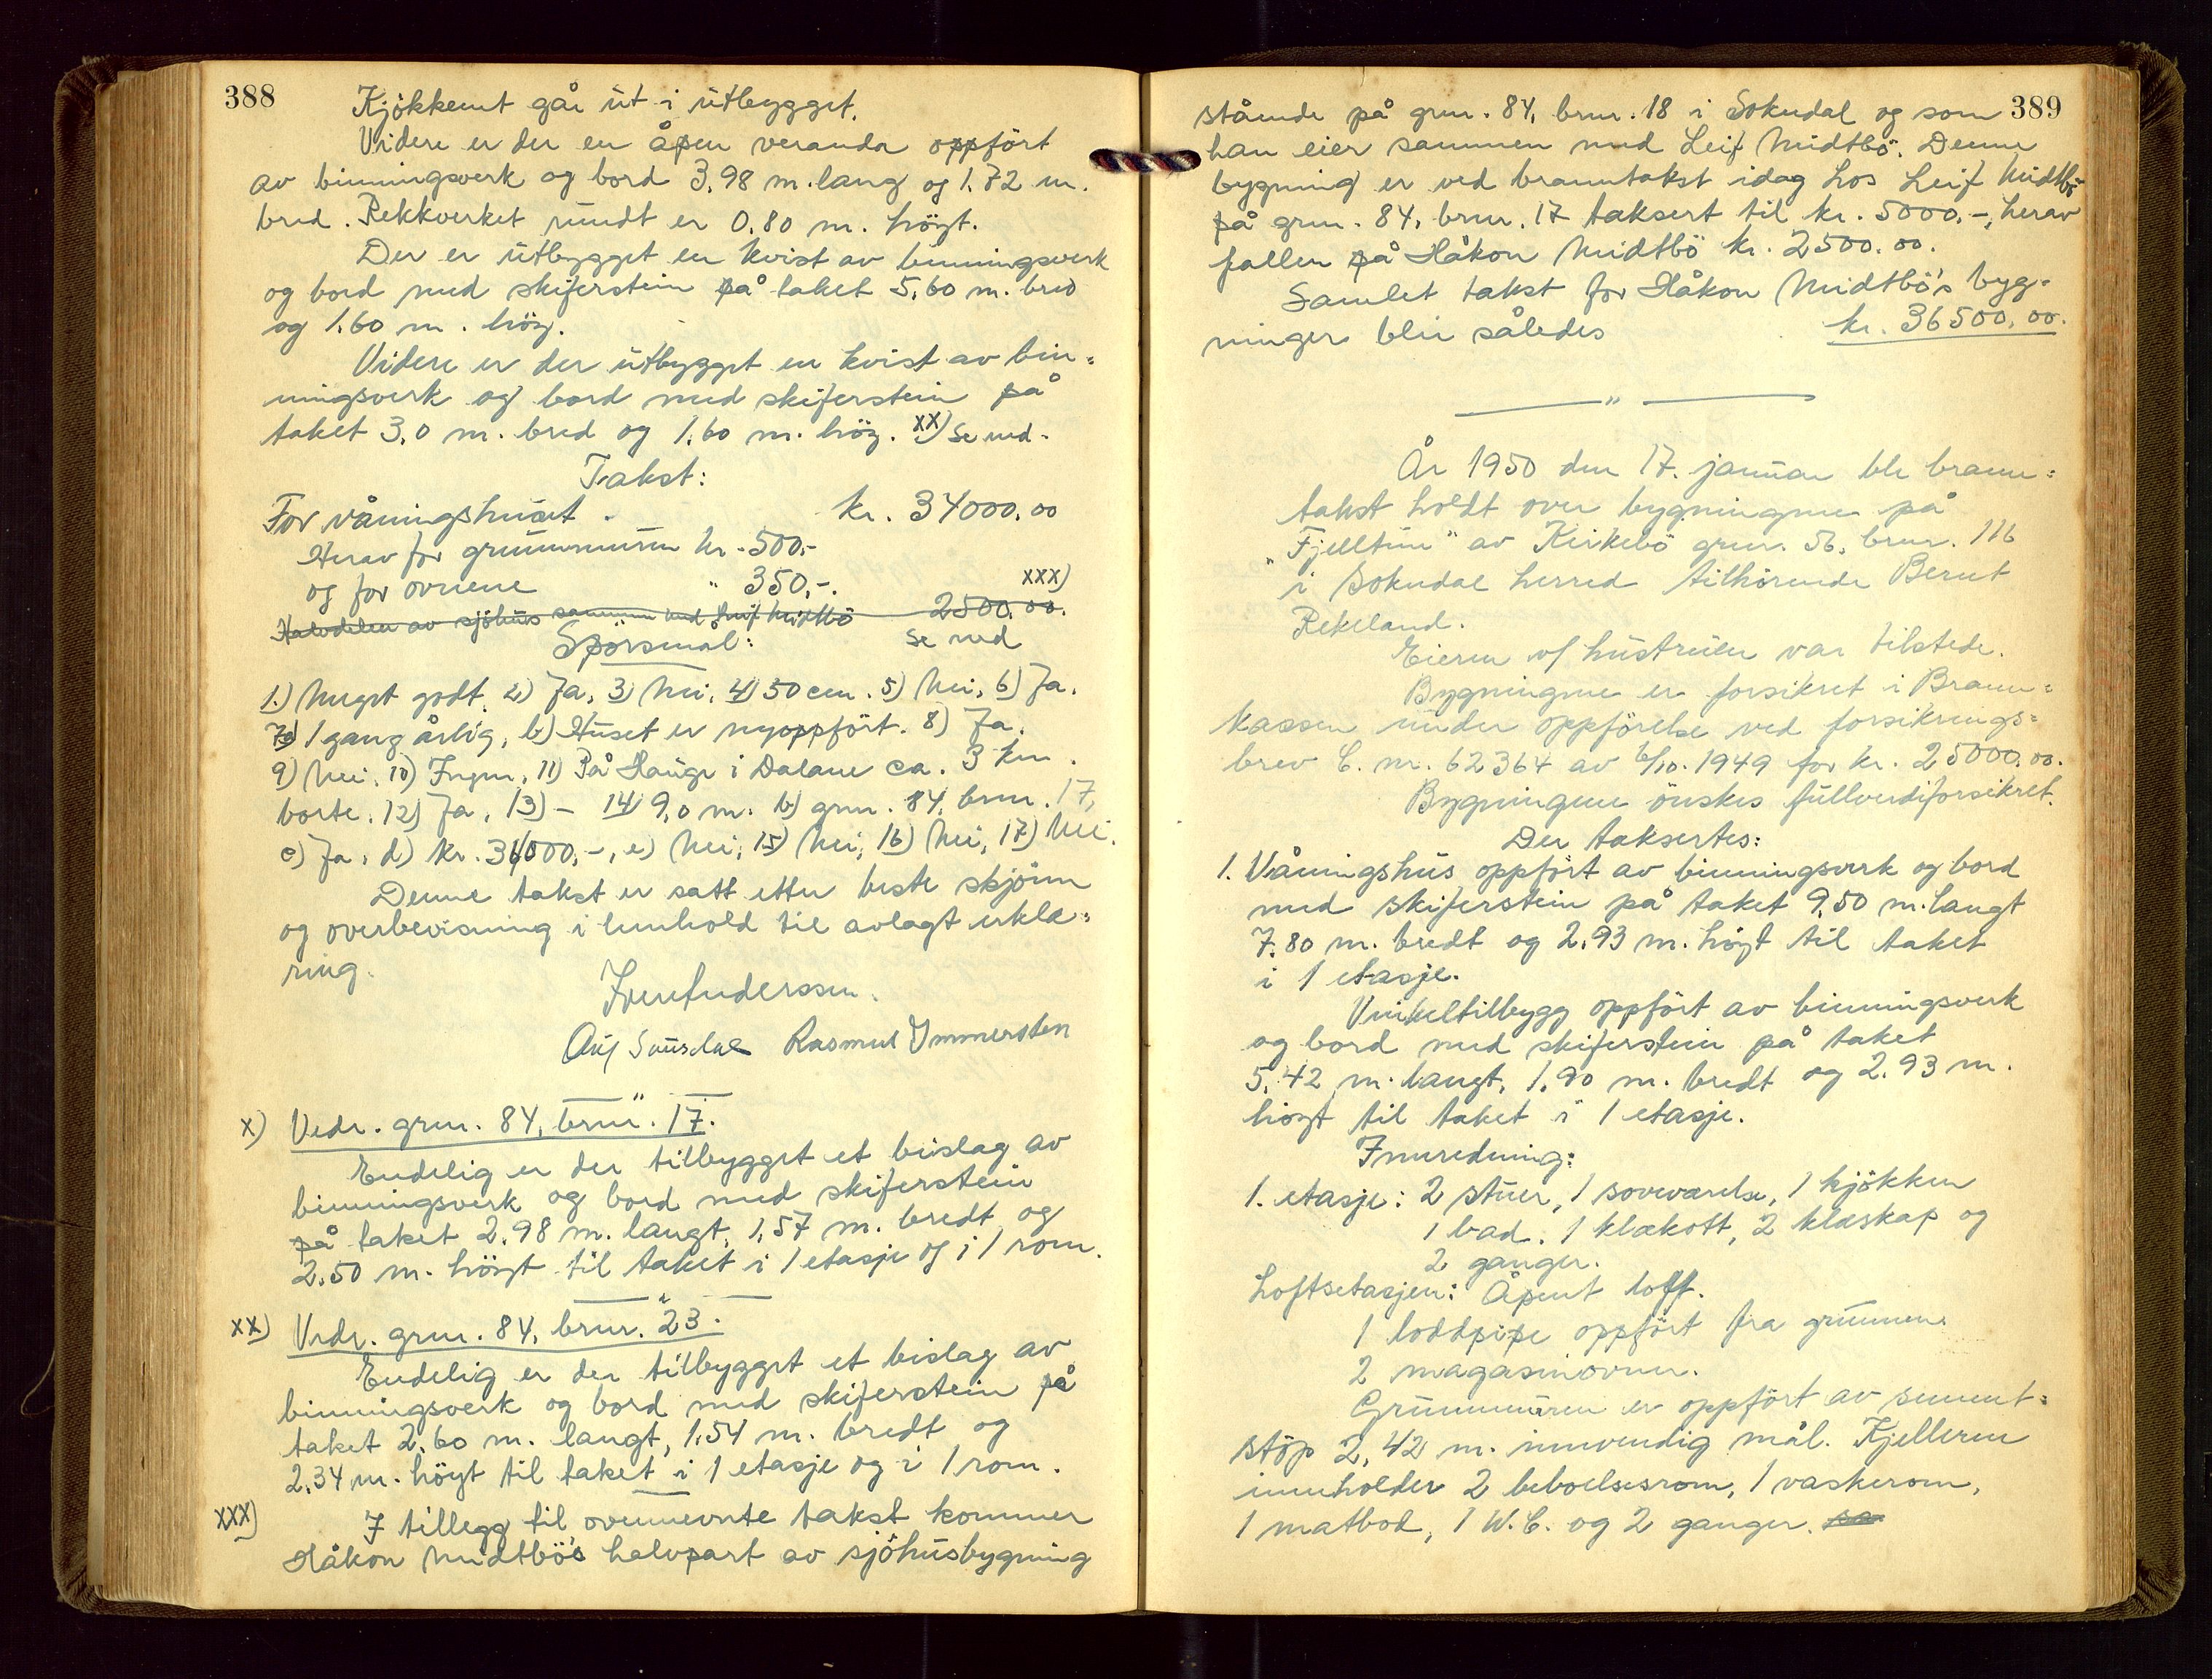 388
Kjökkenet går ut i utbygget.
Videre er der en åpen veranda oppfört
av binningsverk og bord 3.98 m. lang og 1.72 m.
bred. Rekkverket rundt er 0.80 m. höyt.
Der er utbygget en kvist av binningsverk
og bord med skiferstein på taket 5.60 m. bred
og 1.60 m. höy.
Videre er der utbygget en kvist av bin=
ningsverk og bord med skiferstein på
taket 3.0 m. bred og 1.60 m. höy. xx) Se ned.
Takst:
For våningshuset. kr. 34000.00
Herav for grunnmuren kr. 500.-
og for ovnene " 350,-. xxx)
Halvdelen av sjöhus sammen med Leif Midtbö 2500.00.
Spörsmål: Se ned
1.) Meget godt. 2) Ja, 3) Nei, 4) 50 cm. 5) Nei, 6) Ja.
7a) 1 gang årlig, b) Huset er nyoppfört. 8) Ja.
9) Nei. 10) Ingen, 11) På Hauge i Dalane ca. 3 km.
borte. 12) Ja, 13) – 14) 9,0 m. b) gnr. 84, brnr. 17,
c) Ja, d) kr. 34000,-, e) Nei, 15) Nei, 16) Nei, 17) Nei.
Denne takst er satt etter beste skjönn
og overbevisning i henhold til avlagt erklæ=
ring.
Rasmus Ommersten
x) Vedr. gnr. 84, brnr. 17.
Endelig er der tilbygget et beislag av
binningsverk og bord med skiferstein
på taket 2.98 m. langt, 1,57 m. bredt og
2.50 m. höyt til taket i 1 etasje og i 1 rom.
xx) Vedr. gnr. 84, brnr. 23.
Endelig er der tilbygget et bislag av
binningsverk og bord med skiferstein på
taket 2.60 m. langt, 1.54 m. bredt og
2.34 m. höyt til taket i 1 etasje og i 1 rom.
xxx) I tillegg til ovennevnte takst kommer
Håkon Midtbö's halvpart av sjöhusbygning
389
stående på gnr. 84, brnr. 18 i Sokndal og som
han eier sammen med Leif Midtbö. Denne
bygning er ved branntakst idag hos Leif Midtbö
på gnr. 84, brnr. 17 taksert til kr. 5000.-, herav
fallen på Håkon Midtbö kr. 2500.00.
Samlet takst for Håkon Midtbö's byg-
ninger blir således kr. 36500,00.
År 1950 den 17. januar ble brann=
takst holdt over bygningene på
"Fjelltun" av Kirkebö gnr. 56, brnr. 116
i Sokndal herred tilhörende Bernt
Rekeland.
Eieren v/ hustruen var tilstede.
Bygningene er forsikret i Brann=
kassen under oppförelse ved forsikrings=
brev C. nr. 62364 av 6/10. 1949 for kr. 25000.00.
Bygningene önskes fullverdiforsikret.
Der taksertes:
1. Våningshus oppfört av binningsverk og bord
med skiferstein på taket 9,50 m. langt
7.80 m. bredt og 2.93 m. höyt til taket
i 1 etasje.
Vinkeltilbygg oppfört av binningsverk
og bord med skiferstein på taket
5.42 m. langt, 1.90 m. bredt og 2.93 m.
höyt til taket i 1 etasje.
Innredning:
1. etasje: 2 stuer, 1 soveværelse, 1 kjökken
1 bad. 1 klækott, 2 klæskap og
2 ganger.
Loftsetasjen: Åpent loft.
1 loddpipe oppfört fra grunnen.
2 magasinovner.
Grunnmuren er oppfört av sement=
stöp 2,42 m. innvendig mål. Kjelleren
inneholder 2 beboelsesrom, 1 vaskerom,
1 matbod, 1 W.C. og 2 ganger.